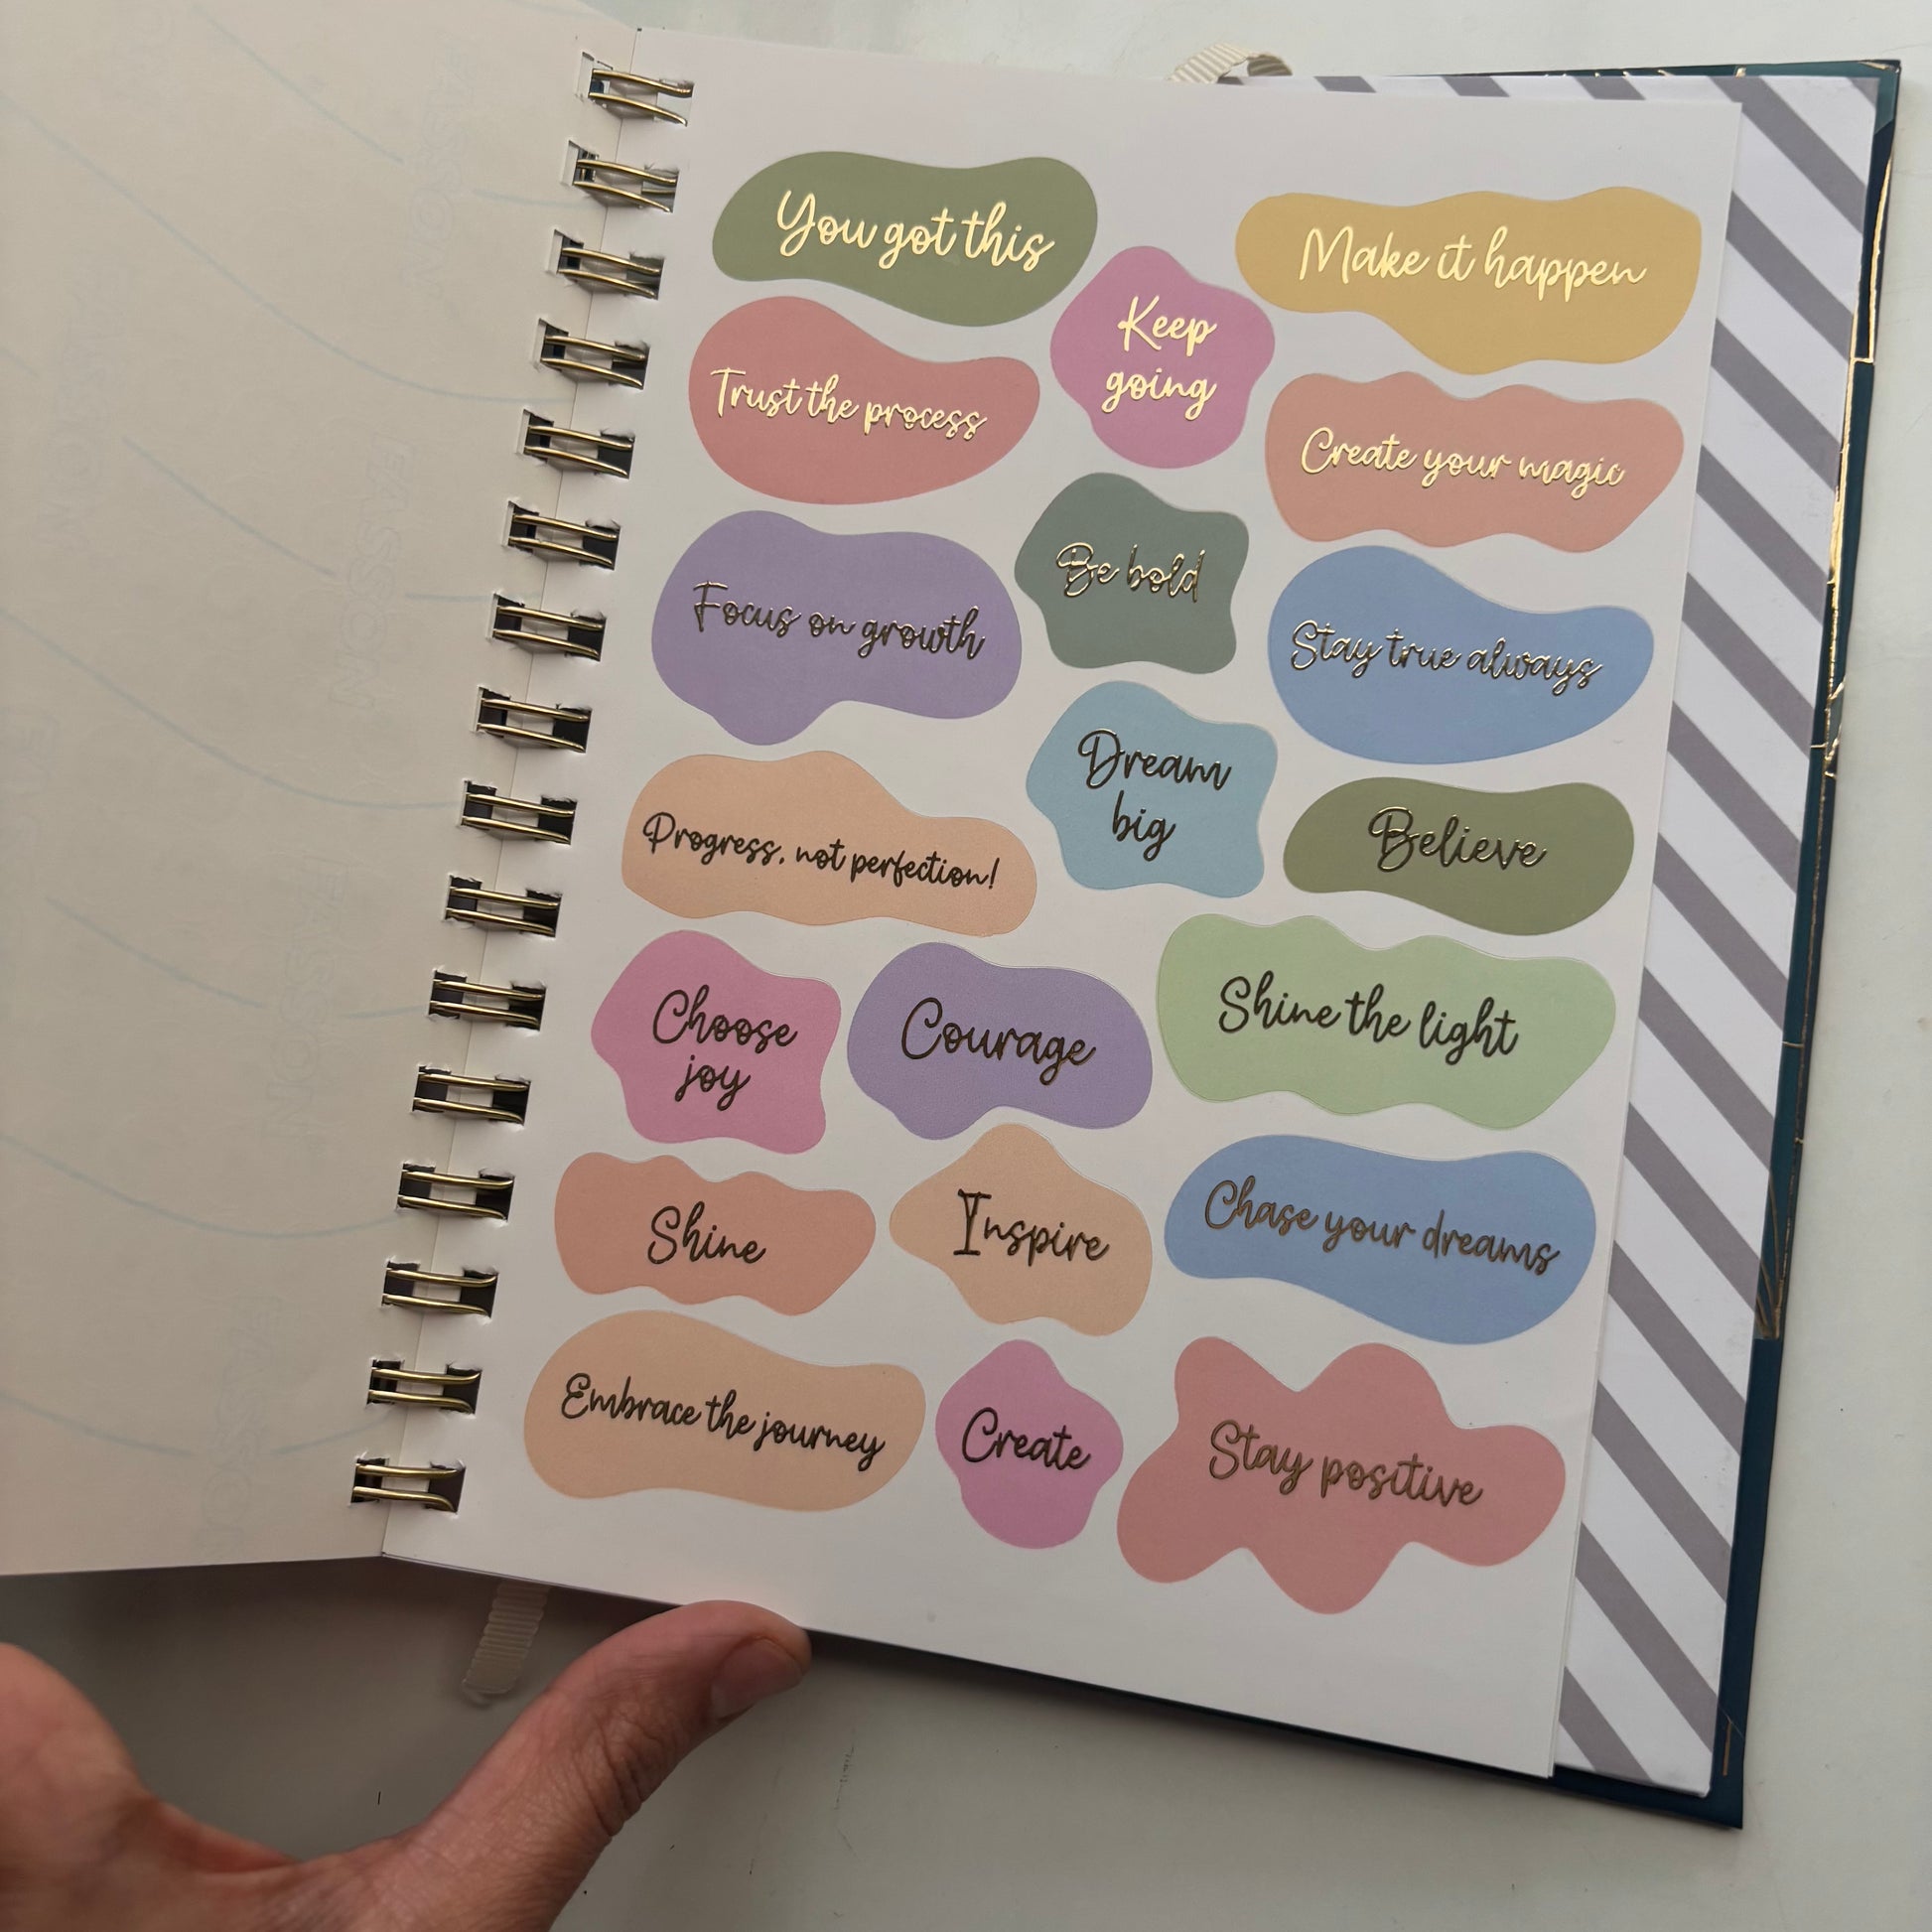 You got this
Make it happen
Keep
going
Trust the process
Create your magic
Be bold
Focus on growth
Stay true always
Dream
big
Progress, not perfection!
Believe
Choose
joy
Courage
Shine the light
Shine
Inspire
Chase your dreams
Embrace the journey
Create
Stay positive
FASSON
FASSON
FASSON